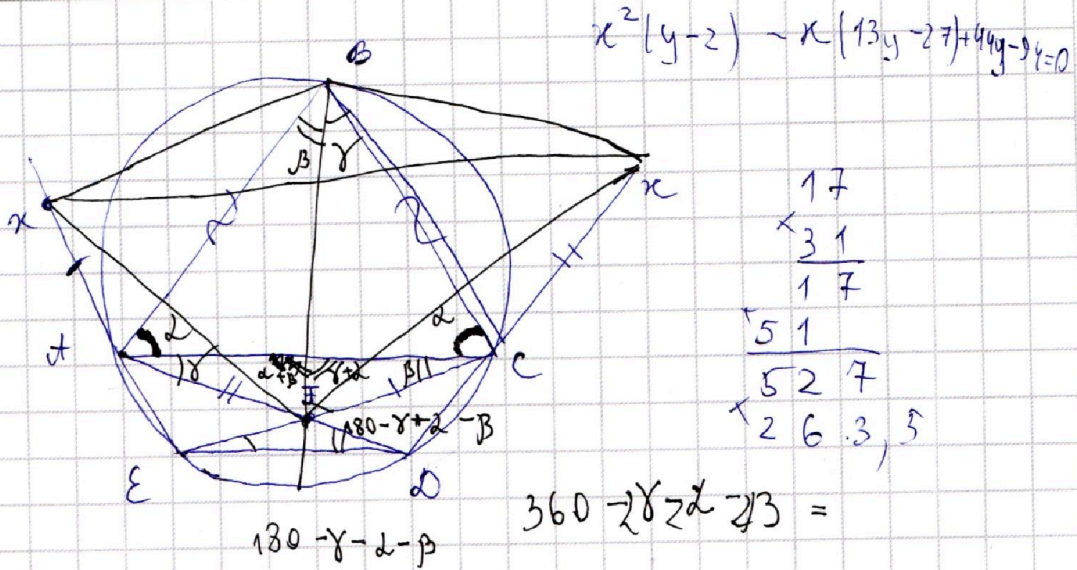 x²(y-2) - x(13y-27)+44y-94=0
B
β γ
x
x
α
α
A
C
γ
β
α+β
γ+α
I
180-γ+α-β
E
D
180-γ-α-β
360-2γ-2α-2β =
17
× 31
17
+ 51
527
× 263,5